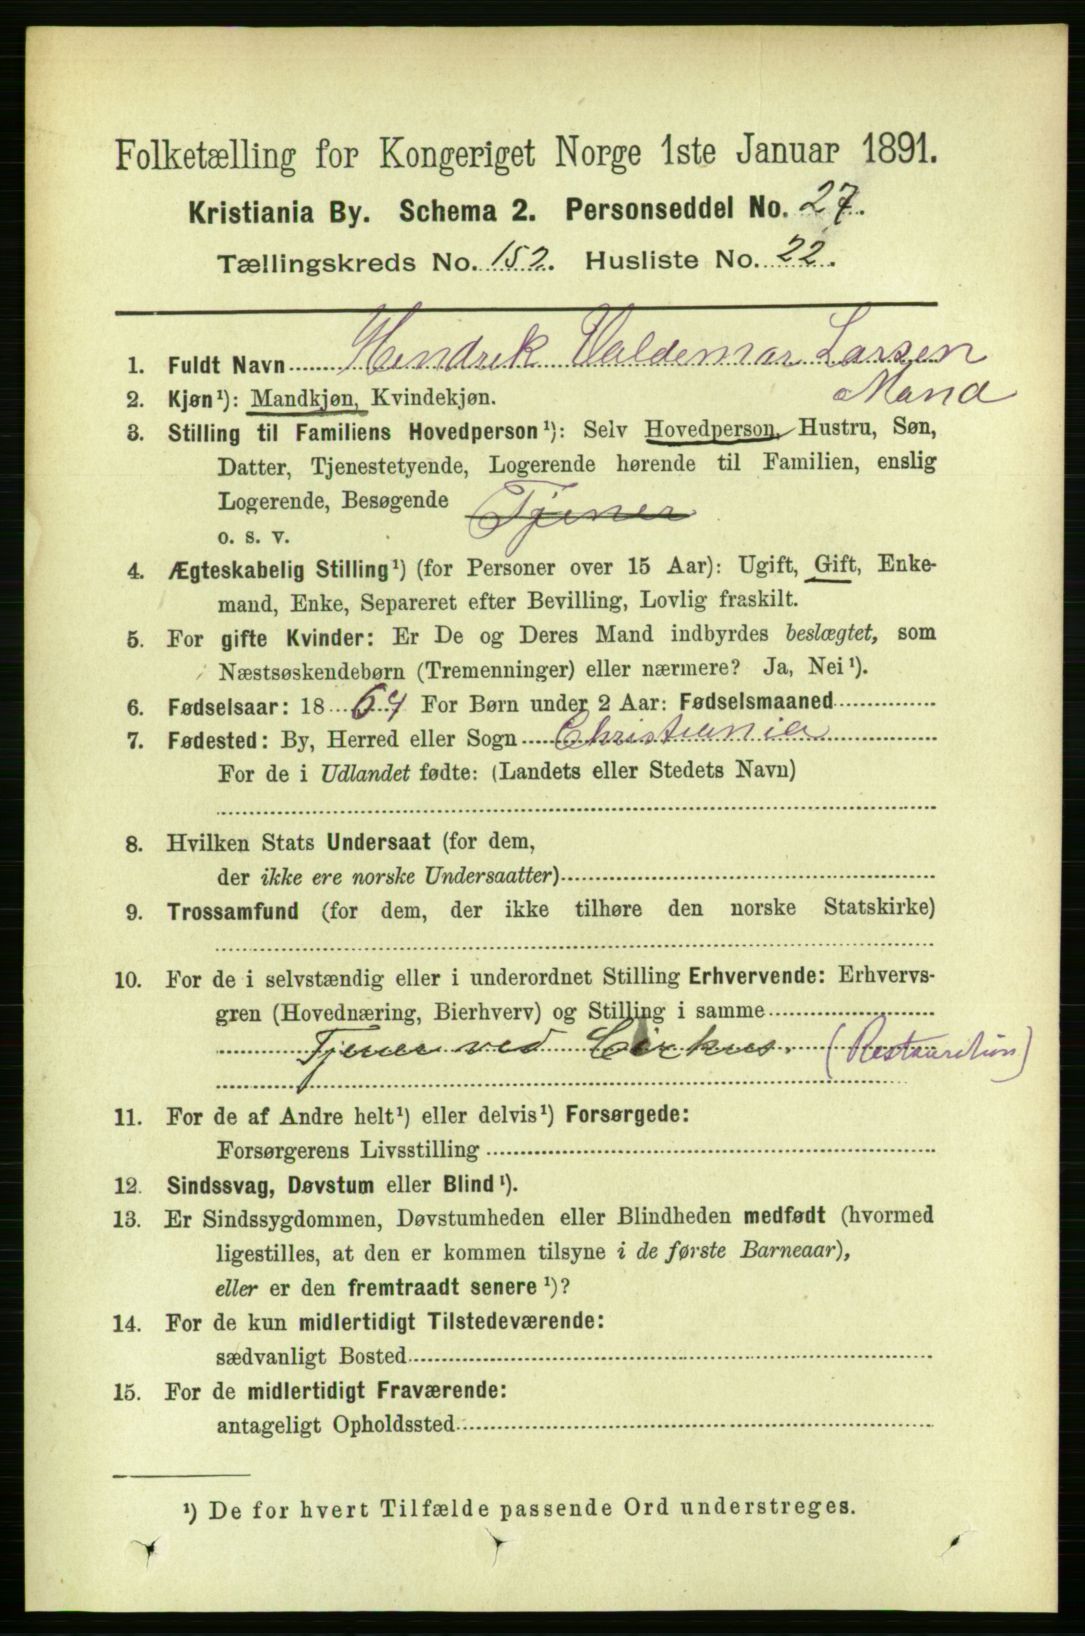 Folketælling for Kongeriget Norge 1ste Januar 1891.
Kristiania By. Schema 2. Personseddel No. 27.
Tællingskreds No. 152. Husliste No. 22.
1. Fuldt Navn Hendrik Valdemar Larsen
Mand
2. Kjøn¹): Mandkjøn, Kvindekjøn.
3. Stilling til Familiens Hovedperson¹): Selv Hovedperson, Hustru, Søn,
Datter, Tjenestetyende, Logerende hørende til Familien, enslig
Logerende, Besøgende Tjener
o. s. v.
4. Ægteskabelig Stilling¹) (for Personer over 15 Aar): Ugift, Gift, Enke-
mand, Enke, Separeret efter Bevilling, Lovlig fraskilt.
5. For gifte Kvinder: Er De og Deres Mand indbyrdes beslægtet, som
Næstsøskendebørn (Tremenninger) eller nærmere? Ja, Nei¹).
6. Fødselsaar: 1864 For Børn under 2 Aar: Fødselsmaaned
7. Fødested: By, Herred eller Sogn Christiania
For de i Udlandet fødte: (Landets eller Stedets Navn)
8. Hvilken Stats Undersaat (for dem,
der ikke ere norske Undersaatter)
9. Trossamfund (for dem, der ikke tilhøre den norske Statskirke)
10. For de i selvstændig eller i underordnet Stilling Erhvervende: Erhvervs-
gren (Hovednæring, Bierhverv) og Stilling i samme
Tjener ved Cirkus. (Restauration)
11. For de af Andre helt¹) eller delvis¹) Forsørgede:
Forsørgerens Livsstilling
12. Sindssvag, Døvstum eller Blind¹).
13. Er Sindssygdommen, Døvstumheden eller Blindheden medfødt (hvormed
ligestilles, at den er kommen tilsyne i de første Barneaar),
eller er den fremtraadt senere¹)?
14. For de kun midlertidigt Tilstedeværende:
sædvanligt Bosted
15. For de midlertidigt Fraværende:
antageligt Opholdssted
¹) De for hvert Tilfælde passende Ord understreges.